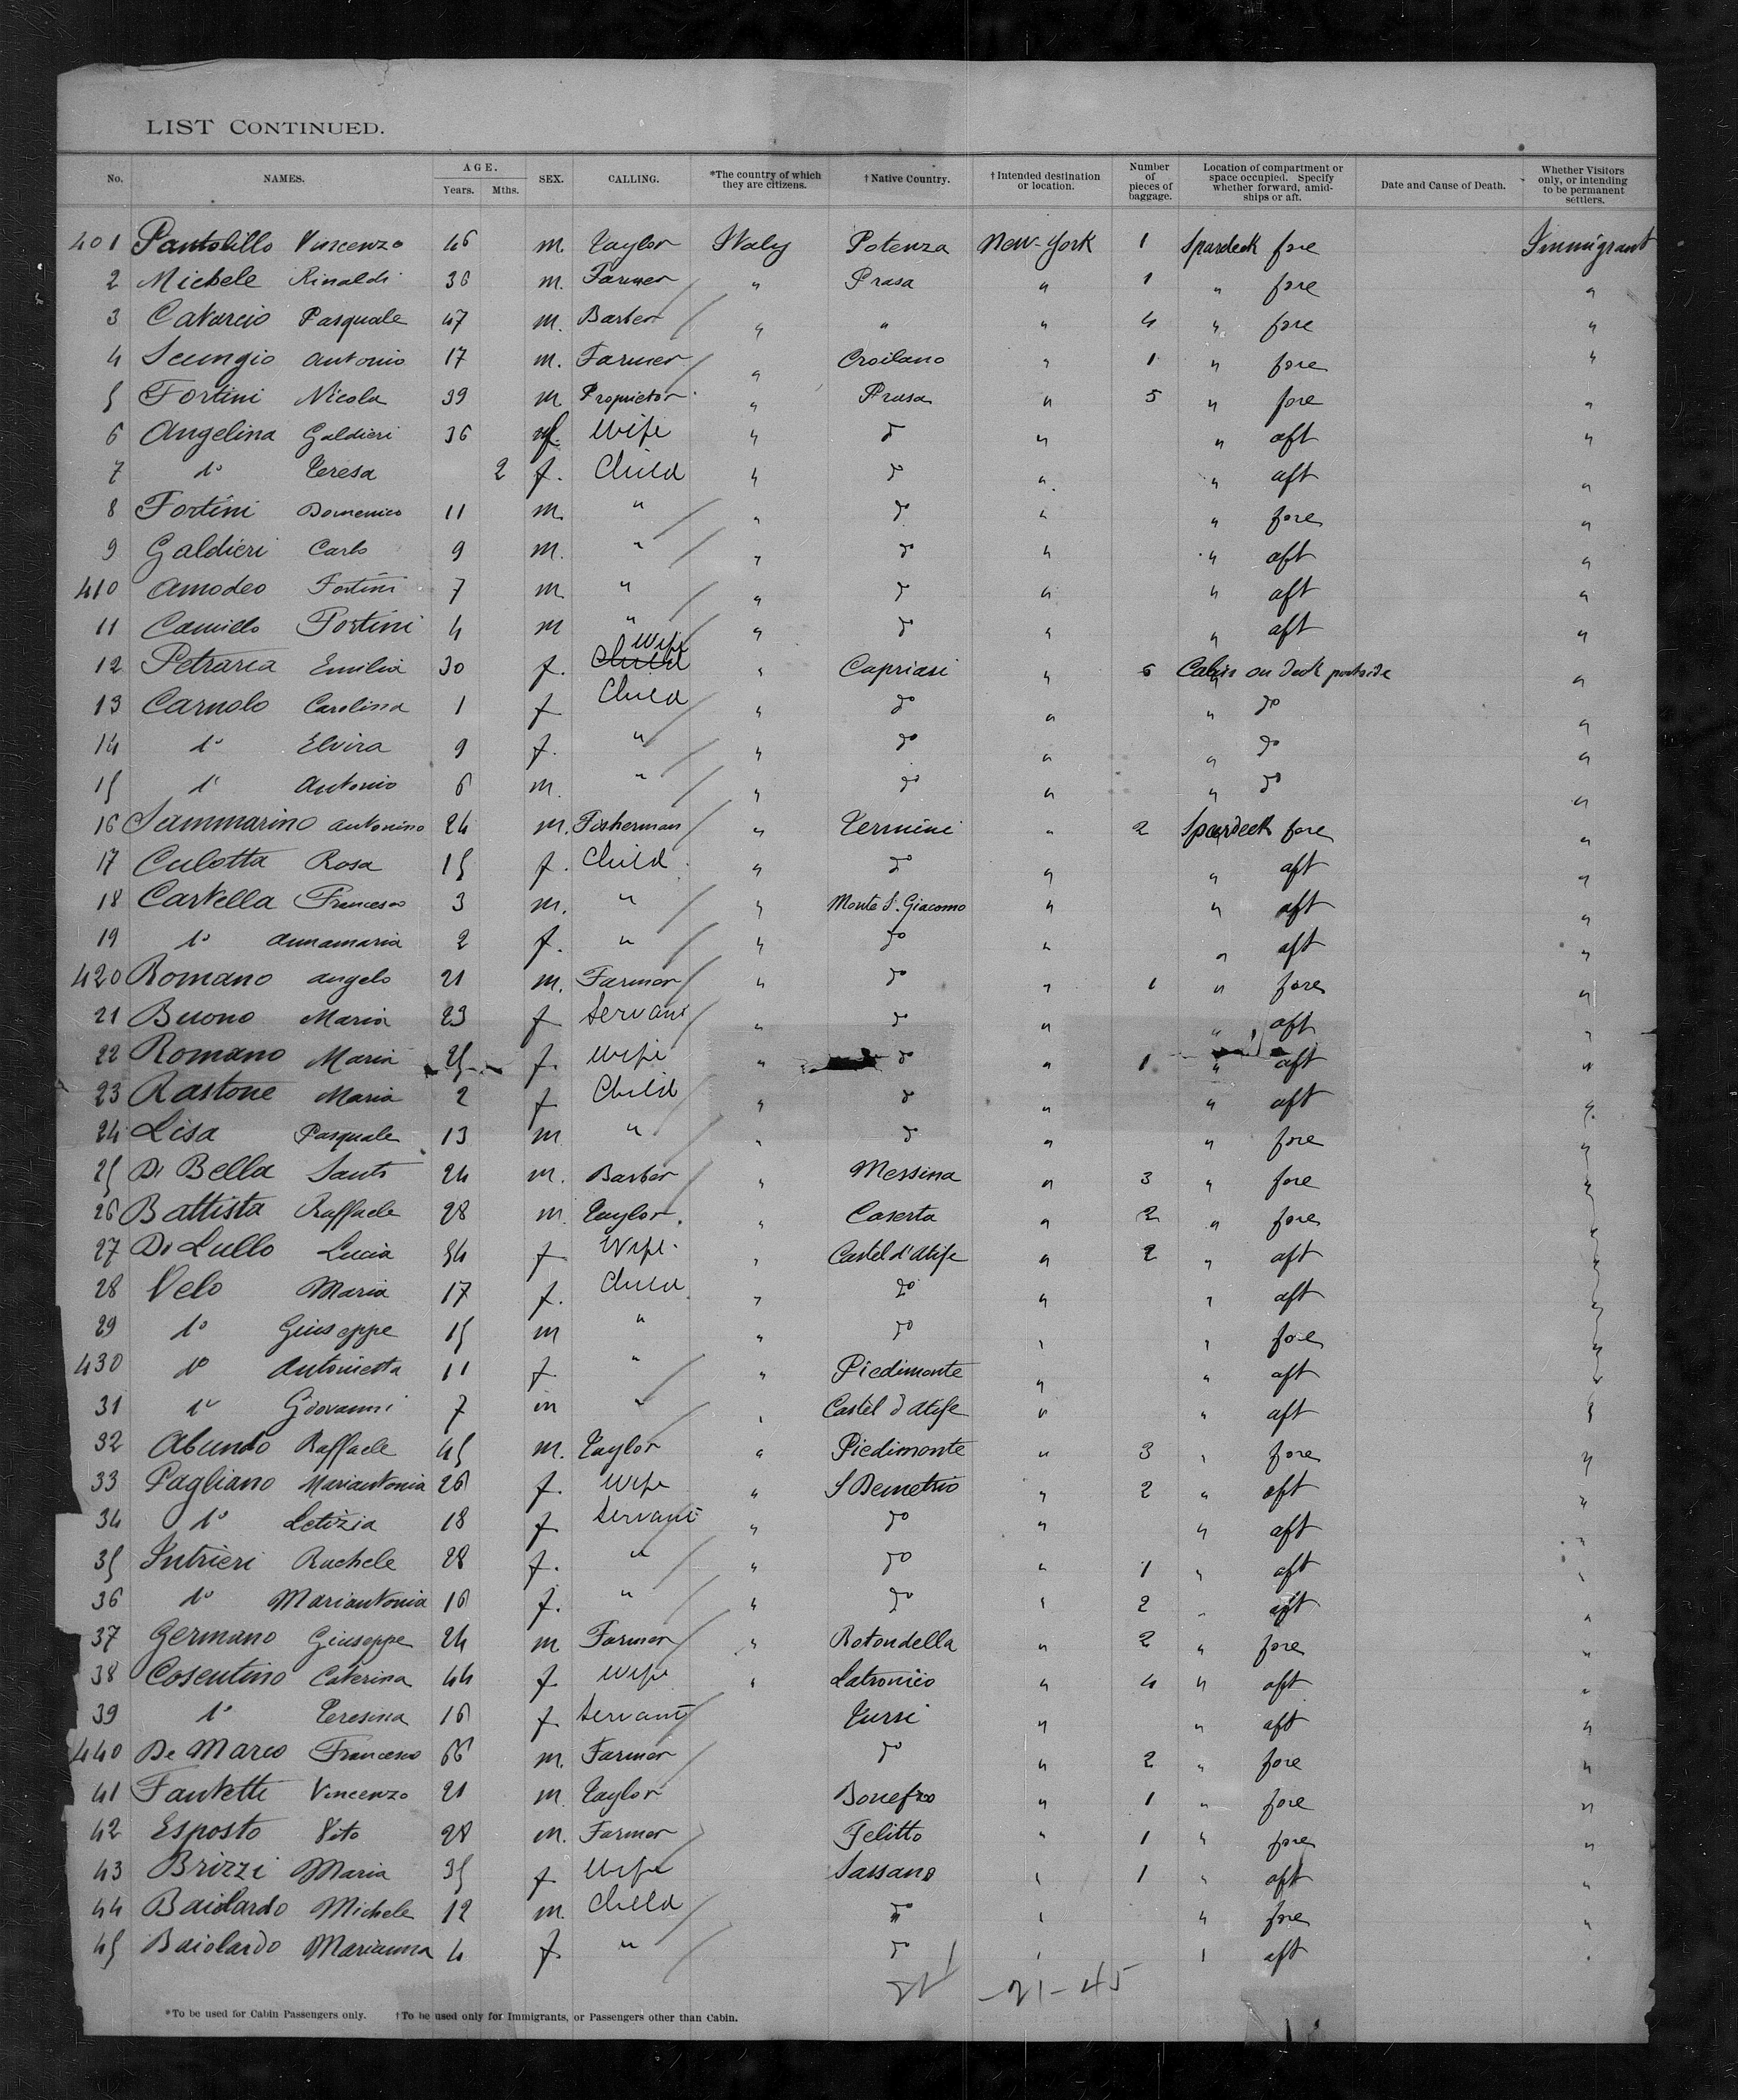 LIST CONTINUED.
No. NAMES. AGE. Years. Mths. SEX. CALLING. *The country of which they are citizens. †Native Country. †Intended destination or location. Number of pieces of baggage. Location of compartment or space occupied. Specify whether forward, amidships or aft. Date and Cause of Death. Whether Visitors only, or intending to be permanent settlers.
401 Pantolillo Vincenzo 46 m. Taylor Italy Potenza New-York 1 Spardeck fore Immigrant
2 Michele Rinaldi 36 m. Farmer " Prasa " 1 " fore "
3 Catarcio Pasquale 47 m. Barber " " " 4 " fore "
4 Scungio Antonio 17 m. Farmer " " 1 " fore "
5 Fortini Nicola 39 m. Proprietor " Prasa " 5 " fore "
6 Angelina Galdieri 36 f. Wife " do " " aft "
7 do Teresa 2 f. Child " do " " aft "
8 Fortini Domenico 11 m. " " do " " fore "
9 Galdieri Carlo 9 m. " " do " " aft "
410 Amodeo Fortini 7 m " " do " " aft "
11 Camillo Fortini 4 m " " do " " aft "
12 Petrarca Emilia 30 f. Wife " Capriati " 6 Cabin on deck portside "
13 Carnolo Carolina 1 f Child " do " " do "
14 do Elvira 9 f. " " do " " do "
15 do Antonio 6 m. " " do " " do "
16 Sammarino Antonino 24 m. Fisherman " Termini " 2 Spardeck fore "
17 Culotta Rosa 15 f. Child " do " " aft "
18 Cartella Francesco 3 m. " " Monte S. Giacomo " " aft "
19 do Annamaria 2 f. " " do " " aft "
420 Romano Angelo 21 m. Farmer " do " 1 " fore "
21 Buono Maria 23 f Servant " do " " aft "
22 Romano Maria 25 f. Wife " do " 1 " aft "
23 Rastone Maria 2 f Child " do " " aft "
24 Lisa Pasquale 13 m " " do " " fore "
25 Di Bella Santo 24 m. Barber " Messina " 3 " fore "
26 Battista Raffaele 28 m. Taylor " Caserta " 2 " fore "
27 Di Lullo Lucia 34 f Wife " Castel d'Alife " 2 " aft "
28 Velo Maria 17 f. Child " do " " aft "
29 do Giuseppe 15 m " " do " " fore "
430 do Antonietta 11 f. " " Piedimonte " " aft "
31 do Giovanni 7 m " " Castel d'Alife " " aft "
32 Abundo Raffaele 45 m. Taylor " Piedimonte " 3 " fore "
33 Pagliano Mariantonia 26 f. Wife " S Demetrio " 2 " aft "
34 do Letizia 18 f Servant " do " " aft "
35 Intrieri Rachele 28 f. " " do " 1 " aft "
36 do Mariantonia 16 f. " " do " 2 " aft "
37 Germano Giuseppe 24 m Farmer " Rotondella " 2 " fore "
38 Cosentino Caterina 44 f Wife " Latronico " 4 " aft "
39 do Teresina 16 f Servant Tursi " " aft "
440 De Marco Francesco 66 m. Farmer do " 2 " fore "
41 Fantetti Vincenzo 21 m. Taylor Bonefro " 1 " fore "
42 Esposto Vito 28 m. Farmer Felitto " 1 " fore "
43 Brizzi Maria 35 f Wife Sassano " 1 " aft "
44 Baiolardo Michele 12 m. Child do " " fore "
45 Baiolardo Marianna 4 f. " do " " aft "
21-45
*To be used for Cabin Passengers only. †To be used only for Immigrants, or Passengers other than Cabin.